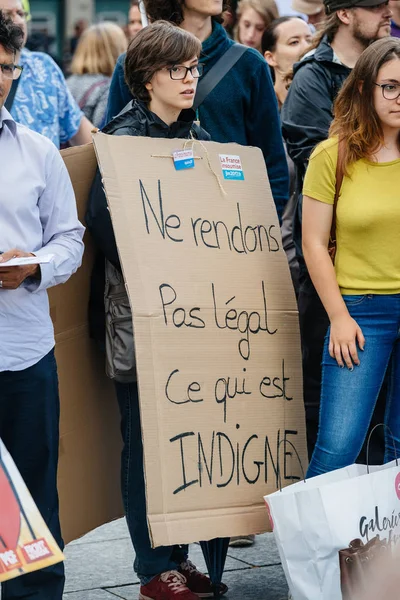 La France
insoumise
Ne rendons
Pas légal
Ce qui est
INDIGNE
Galeries